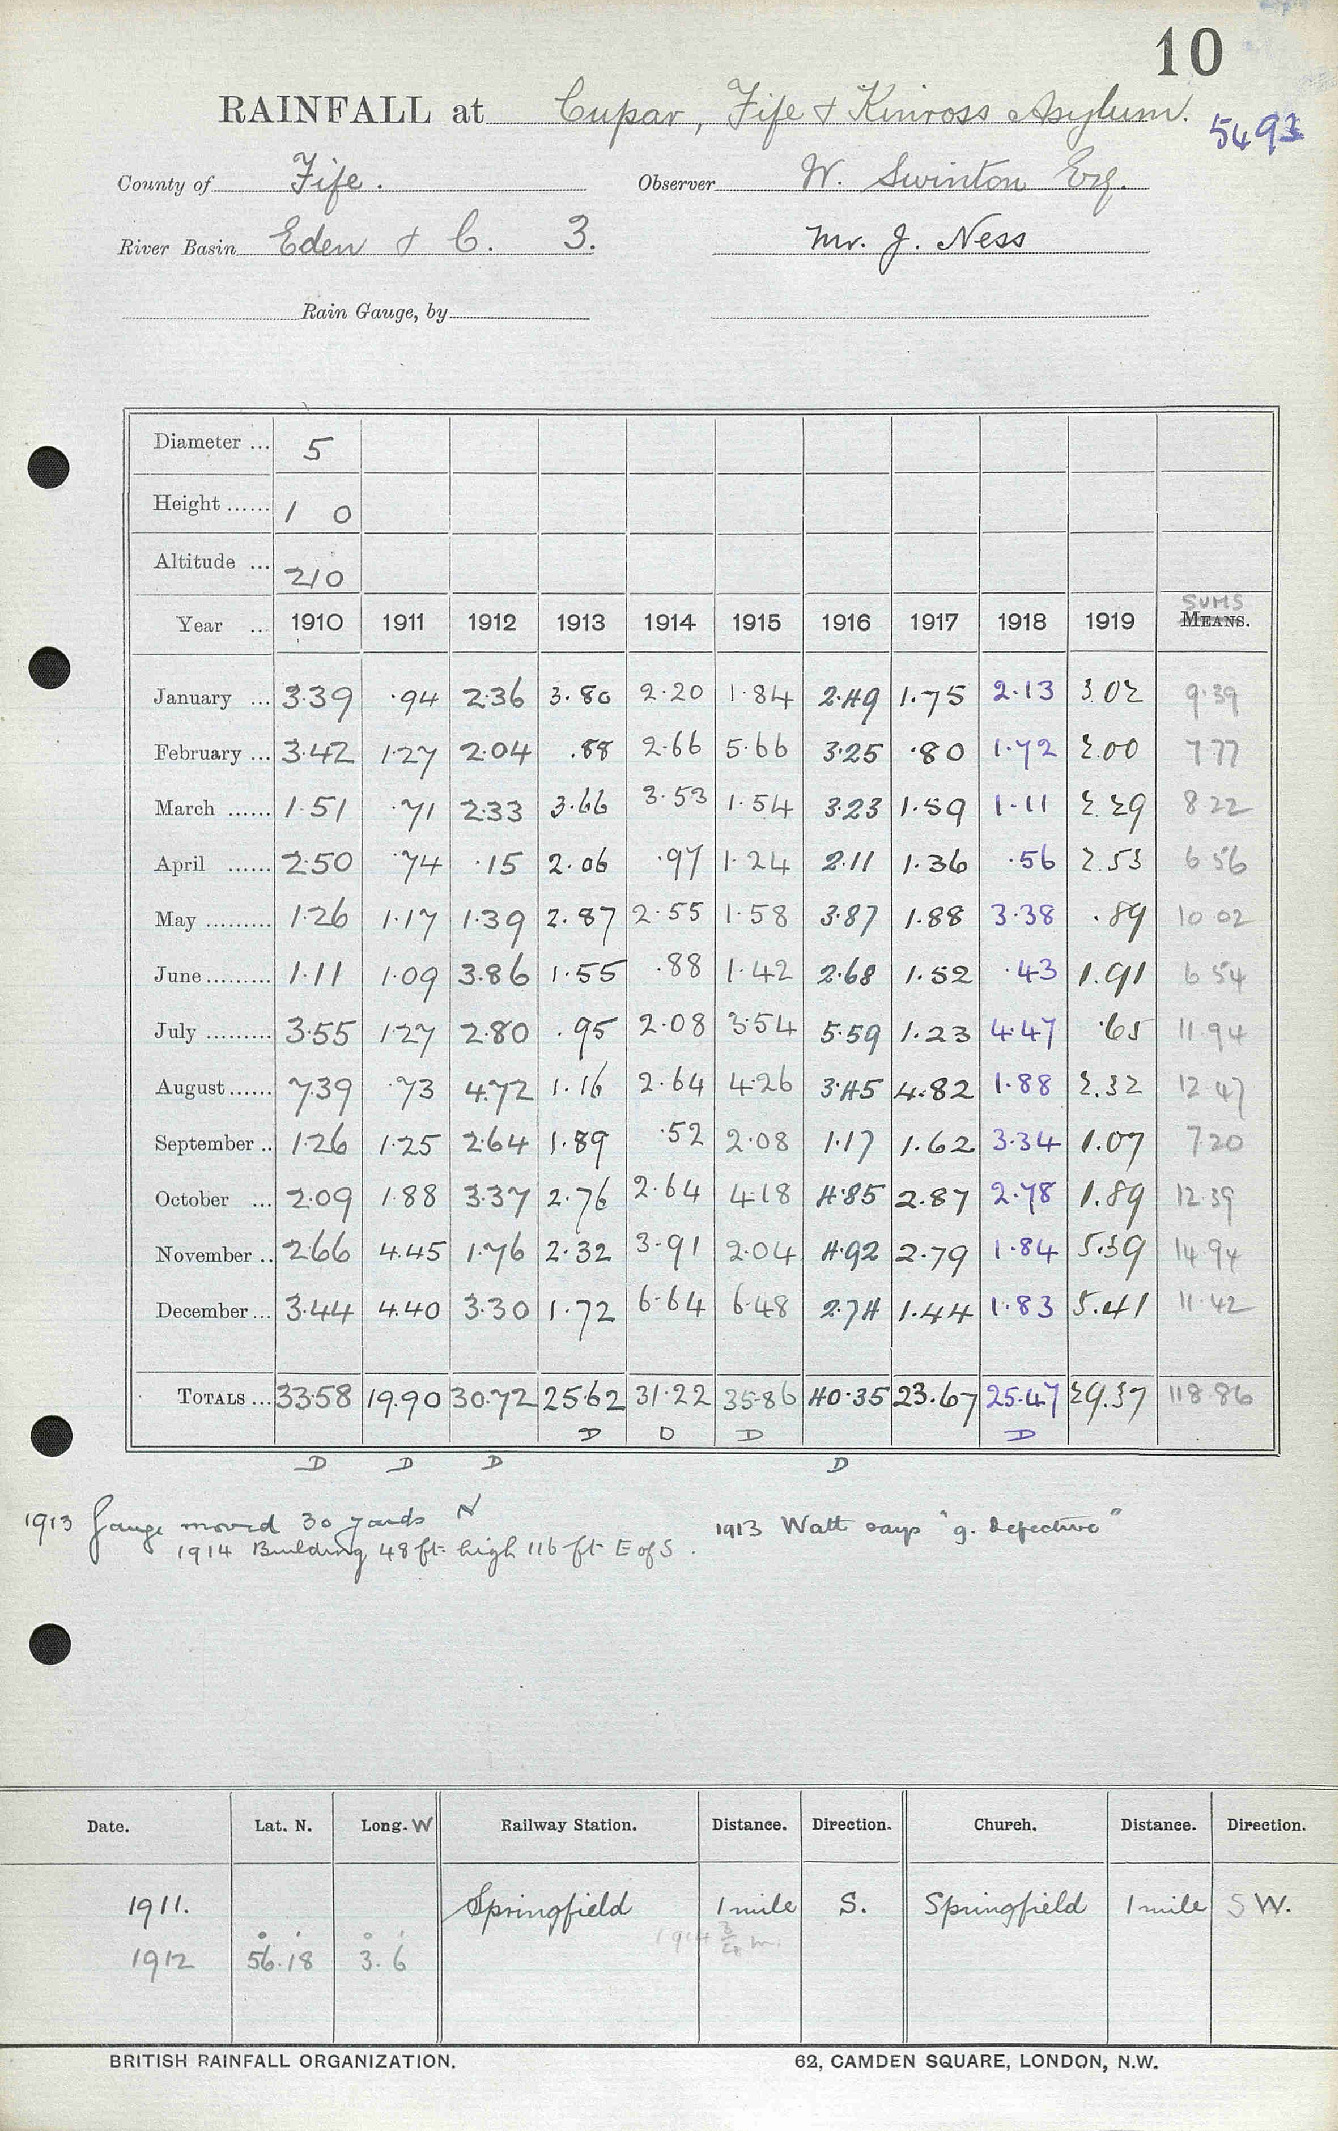 10
RAINFALL at Cupar, Fife & Kinross Asylum.
5493
County of Fife. Observer W. Swinton Esq.
River Basin Eden & C. 3. Mr. J. Ness
Rain Gauge, by
Diameter ... 5
Height ...... 1 0
Altitude ... 210
SUMS
Year ... 1910 1911 1912 1913 1914 1915 1916 1917 1918 1919 MEANS.
January ... 3.39 .94 2.36 3.80 2.20 1.84 2.49 1.75 2.13 3.02 9.39
February ... 3.42 1.27 2.04 .88 2.66 5.66 3.25 .80 1.72 2.00 7.77
March ...... 1.51 .71 2.33 3.66 3.53 1.54 3.23 1.59 1.11 2.29 8.22
April ...... 2.50 .74 .15 2.06 .97 1.24 2.11 1.36 .56 2.53 6.56
May ......... 1.26 1.17 1.39 2.87 2.55 1.58 3.87 1.88 3.38 .89 10.02
June ......... 1.11 1.09 3.86 1.55 .88 1.42 2.68 1.52 .43 1.91 6.54
July ......... 3.55 1.27 2.80 .95 2.08 3.54 5.59 1.23 4.47 .65 11.94
August ...... 7.39 .73 4.72 1.16 2.64 4.26 3.45 4.82 1.88 2.32 12.47
September .. 1.26 1.25 2.64 1.89 .52 2.08 1.17 1.62 3.34 1.07 7.20
October ... 2.09 1.88 3.37 2.76 2.64 4.18 4.85 2.87 2.78 1.89 12.39
November .. 2.66 4.45 1.76 2.32 3.91 2.04 4.92 2.79 1.84 5.39 14.94
December ... 3.44 4.40 3.30 1.72 6.64 6.48 2.74 1.44 1.83 5.41 11.42
TOTALS ... 33.58 19.90 30.72 25.62 31.22 35.86 40.35 23.67 25.47 29.37 118.86
D D D D
D D D D
1913 Gauge moved 30 yards N
1913 Watt says "g. defective"
1914 Building 48 ft high 116 ft E of S.
Date. Lat. N. Long. W Railway Station. Distance. Direction. Church. Distance. Direction.
1911. Springfield 1 mile S. Springfield 1 mile S W.
1914 3/4 m.
1912 56°.18' 3°.6'
BRITISH RAINFALL ORGANIZATION. 62, CAMDEN SQUARE, LONDON, N.W.